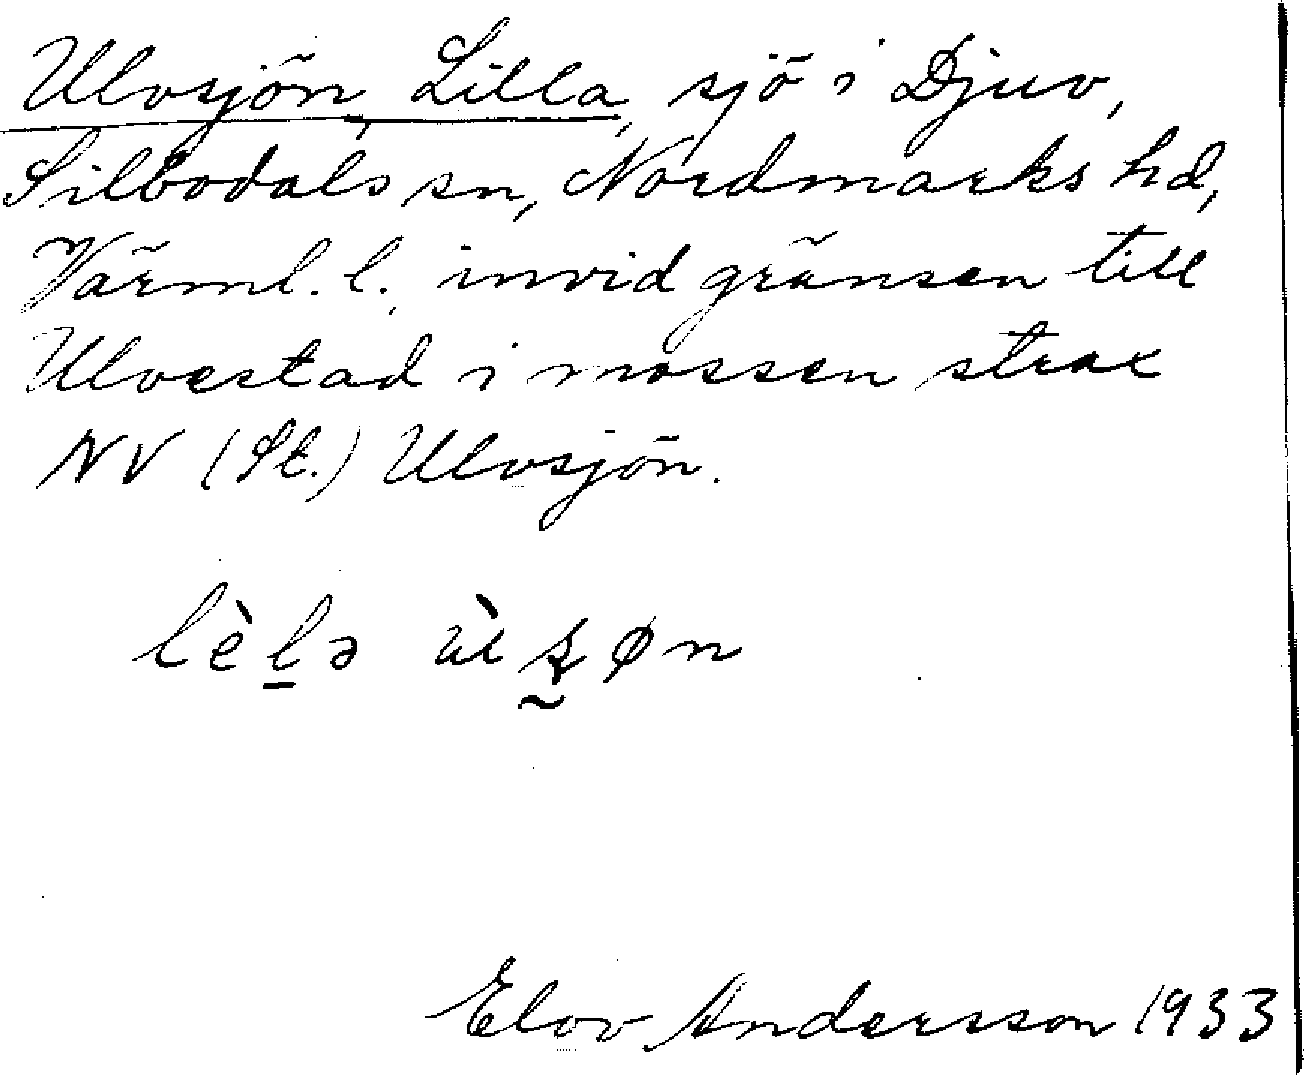 Ulvsjön, Lilla, sjö i Djuv,
Silbodals sn, Nordmarks hd,
Värml. l., invid gränsen till
Ulvestad i mossen strax
NV (St.) Ulvsjön.
lèl̠ə
Elov Andersson 1933